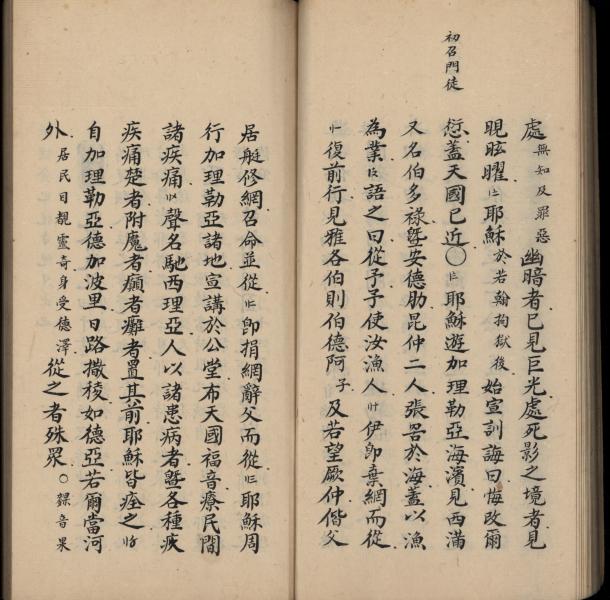 初召門徒
處無知及罪惡幽暗者已見巨光處死影之境者見
晛眩曜〡七耶穌於若翰拘獄後始宣訓誨曰悔改爾
愆蓋天國已近〇〡八耶穌遊加理勒亞海濱見西滿
又名伯多祿曁安德肋昆仲二人張罟於海蓋以漁
為業〡九語之曰從予予使汝漁人〢十伊卽棄網而從
〢一復前行見雅各伯則伯德阿子及若望厥仲偕父
居艇修網召命並從〢二卽捐網辭父而從〢三耶穌周
行加理勒亞諸地宣講於公堂布天國福音療民間
諸疾痛〢四聲名馳西理亞人以諸患病者曁各種疾
疾痛楚者附魔者癲者癱者置其前耶穌皆痊之〢五
自加理勒亞德加波里日路撒稜如德亞若爾當河
外居民目覩靈奇身受德澤從之者殊眾〇